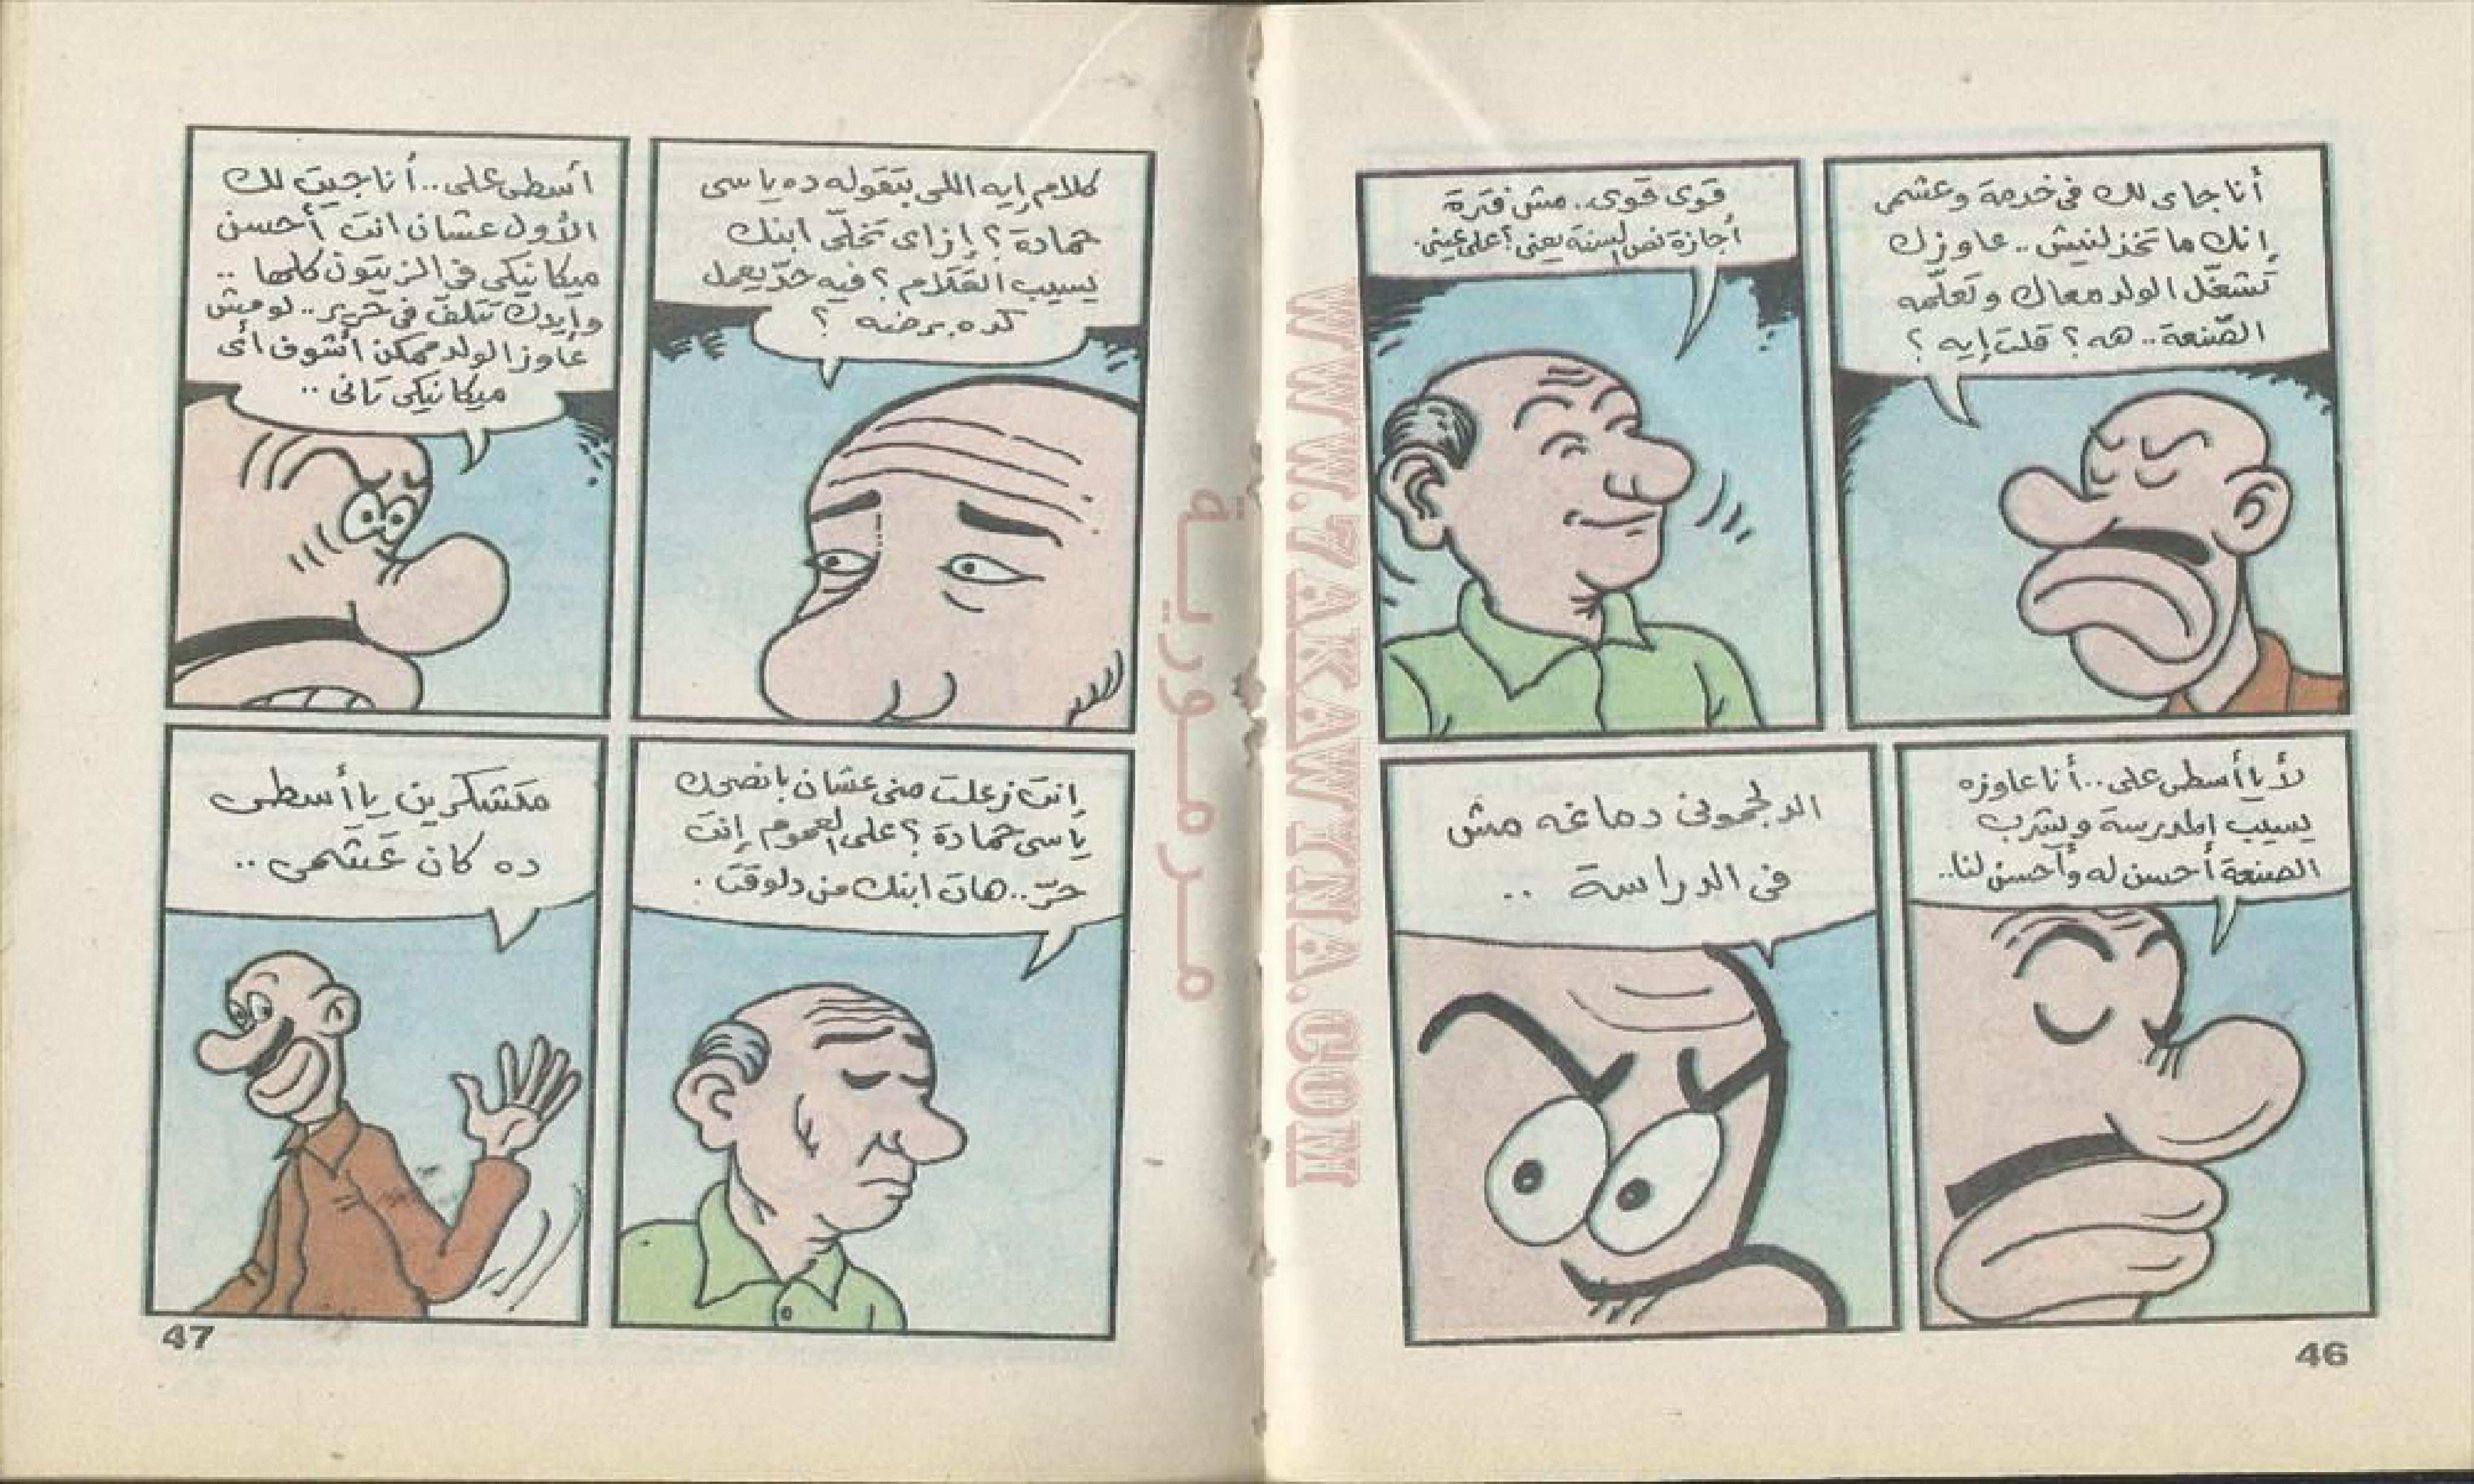 أنا جاى لك فى خدمة وعشمى
إنك ما تخذلنيش.. عاوزك
تشغّل الولد معاك وتعلّمه
الصّنعة.. هه؟ قلت إيه؟
قوى قوى. مش فترة
أجازة نص السنة يعنى؟ على عينى.
لأ يا أسطى على.. أنا عاوزه
يسيب المدرسة ويشرب
الصنعة أحسن له وأحسن لنا..
الدلجمونى دماغه مش
فى الدراسة ..
46
كلام إيه اللى بتقوله ده يا سى
حمادة؟ إزاى تخلّى ابنك
يسيب العَلام؟ فيه حدّ يعمل
كده برضه ؟
أسطى على.. أنا جيت لك
الأول عشان انت أحسن
ميكانيكى فى الزيتون كلها ..
وإيدك تتلف فى حرير.. لو مش
عاوز الولد ممكن أشوف أى
ميكانيكى تانى ..
إنت زعلت منى عشان بانصحك
يا سى حمادة؟ على العموم إنت
حرّ.. هات ابنك من دلوقت .
متشكرين يا أسطى
ده كان عَشَمى ..
47
مرمورية
WWW.7AKAWINA.COM